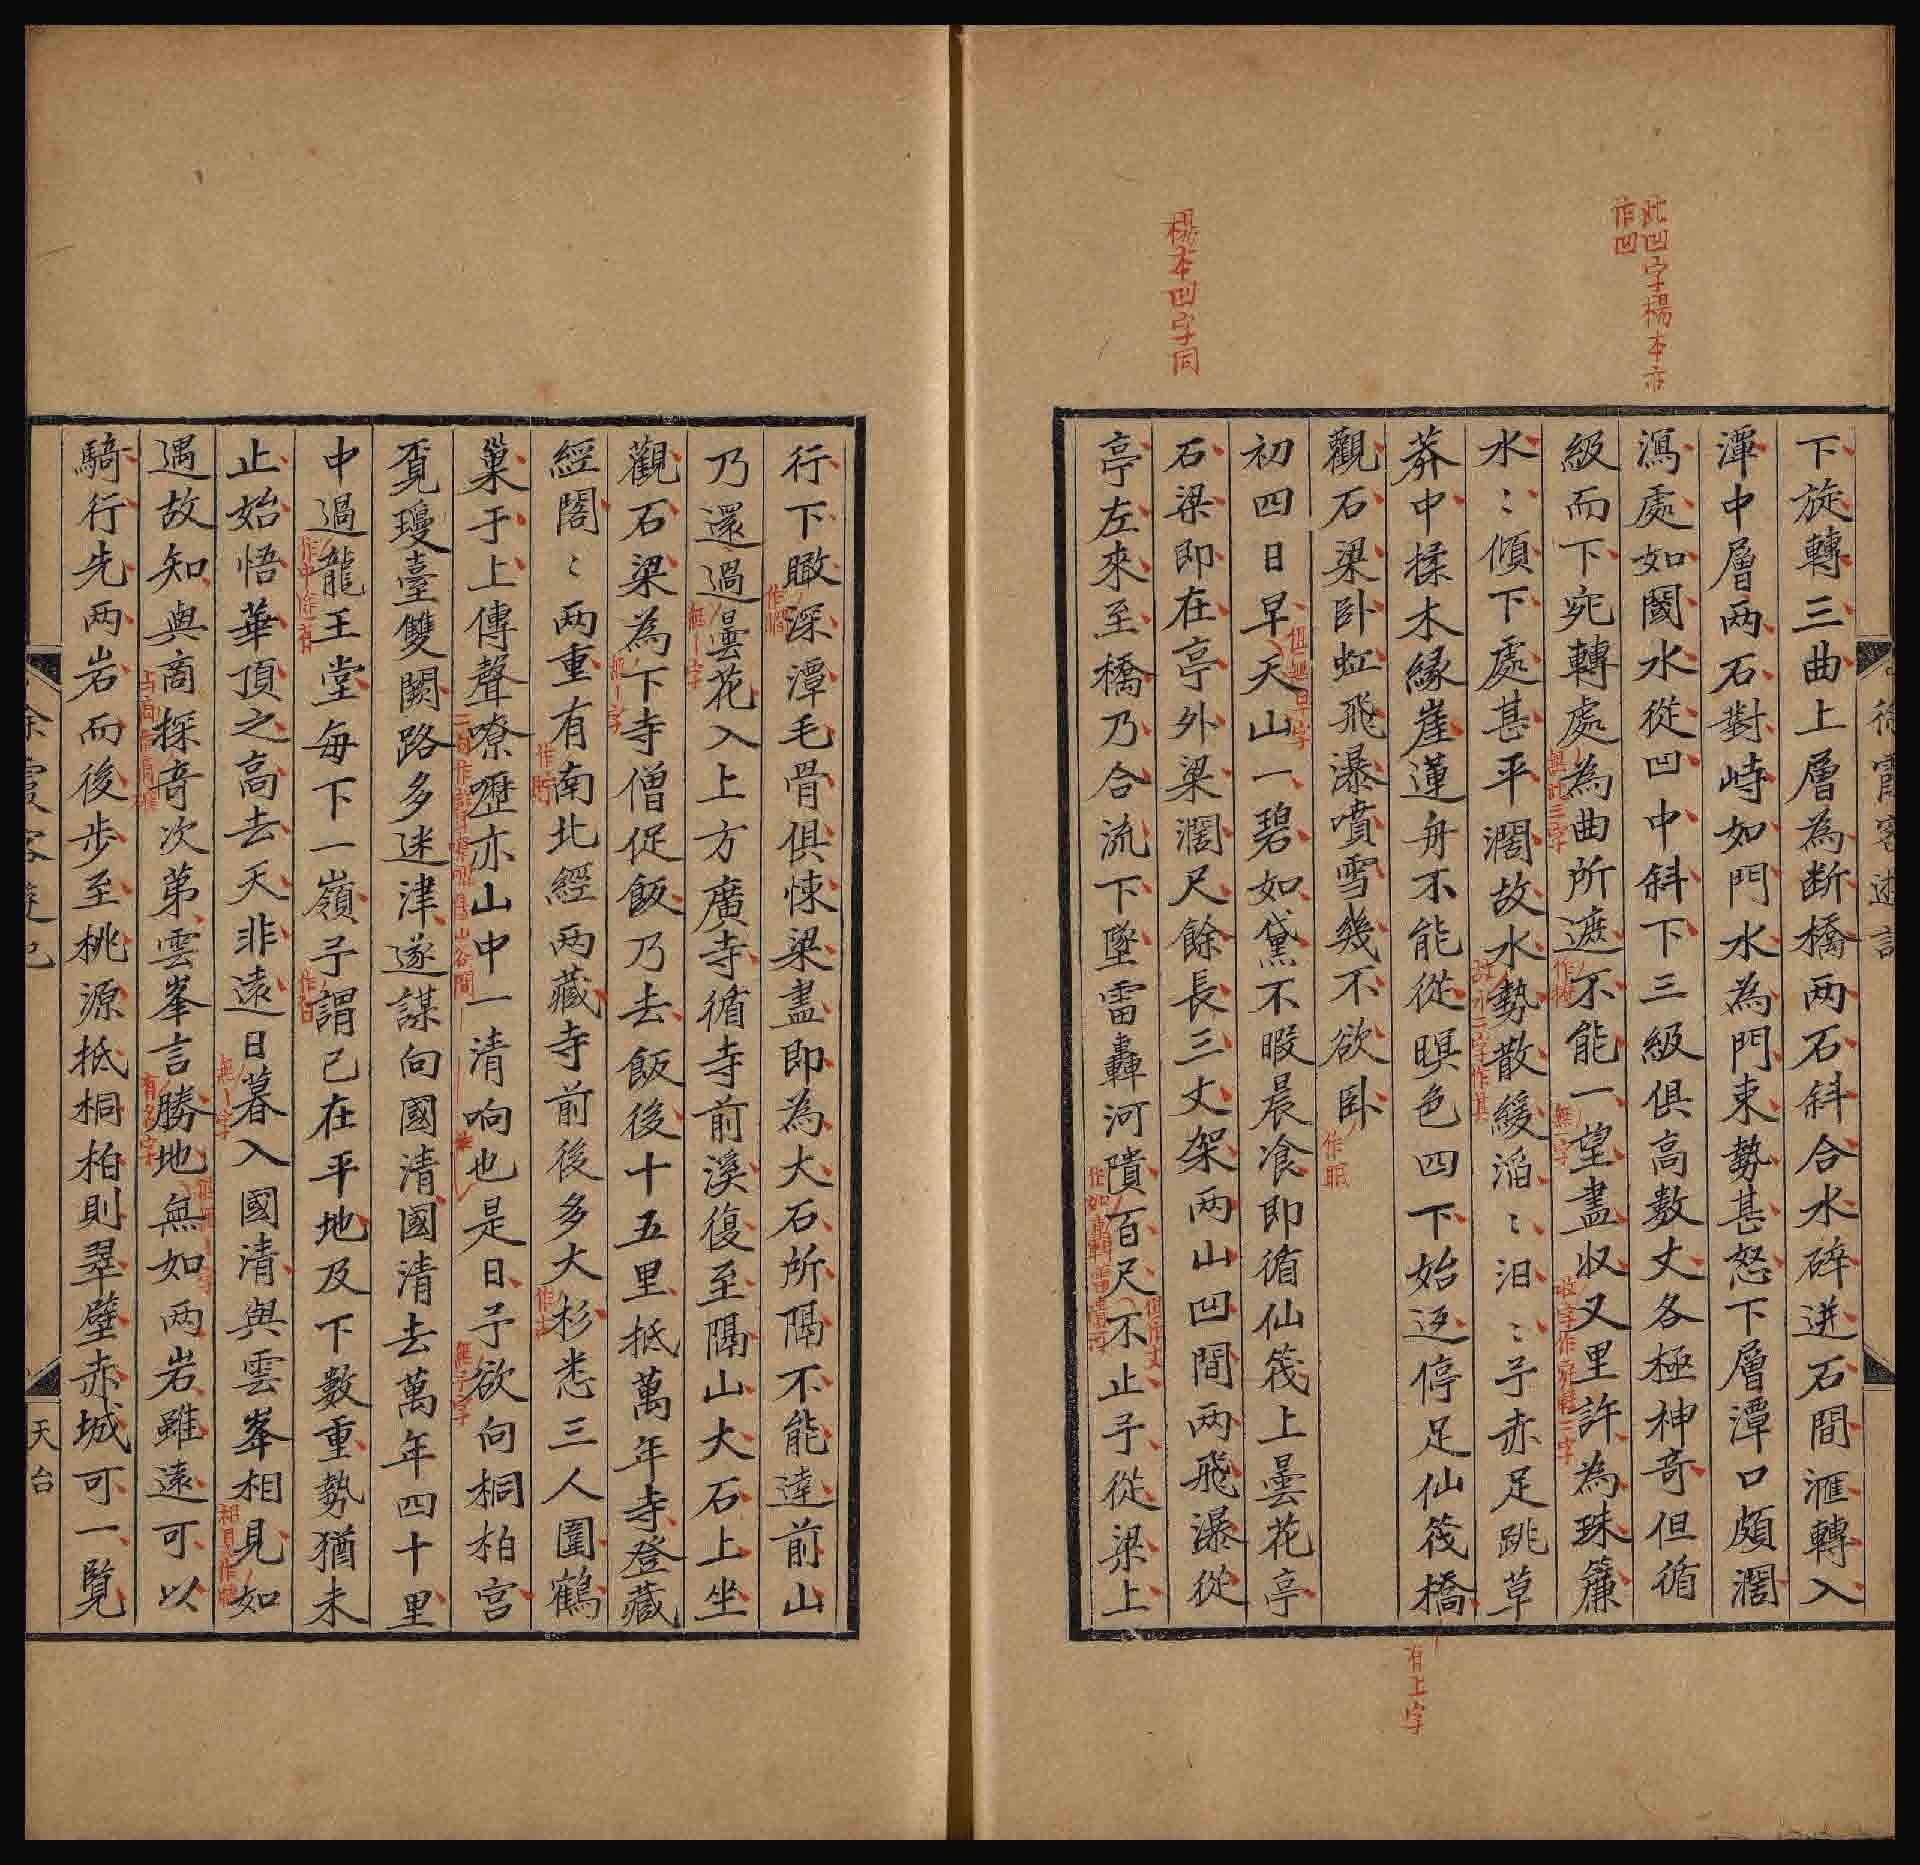 此凹字楊本亦
作凹
楊本凹字同
下旋轉三曲上層為断橋两石斜合水碎迸石間滙轉入
潭中層两石對峙如門水為門束勢甚怒下層潭口頗濶
瀉處如閾水從凹中斜下三級俱高數丈各極神奇但循
級而下宛轉處為曲所遮不能一望盡収又里許為珠簾
水〻傾下處甚平濶故水勢散緩滔〻汩〻予赤足跳草
莽中揉木緣崖蓮舟不能從暝色四下始返停足仙筏橋
觀石梁卧虹飛瀑噴雪幾不欲卧
初四日早天山一碧如黛不暇晨飡即循仙筏上曇花亭
石梁即在亭外梁濶尺餘長三丈架两山凹間两飛瀑從
亭左來至橋乃合流下墜雷轟河隤百尺不止予從梁上
有上字
作眠
無一字
行下瞰深潭毛骨俱悚梁盡即為大石所隔不能達前山
乃還過曇花入上方廣寺循寺前溪復至隔山大石上坐
觀石梁為下寺僧促飯乃去飯後十五里抵萬年寺登藏
經閣〻两重有南北經两藏寺前後多大杉悉三人圍鶴
巢于上傳聲嘹嚦亦山中一清响也是日予欲向桐柏宫
覔瓊臺雙闕路多迷津遂謀向國清國清去萬年四十里
中過龍王堂每下一嶺予謂已在平地及下數重勢猶未
止始悟華頂之高去天非遠日暮入國清與雲峯相見如
遇故知與商探奇次第雲峯言勝地無如两岩雖遠可以
騎行先两岩而後步至桃源抵桐柏則翠壁赤城可一覧
無一字
無一字
無予字
有名字
無一字
徐霞客遊記
天台